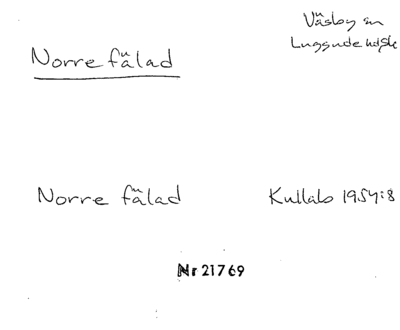 Väsby sn
Luggude hd Sk
Norre fälad
Norre fälad Kullabo 1954:8
Nr 21769